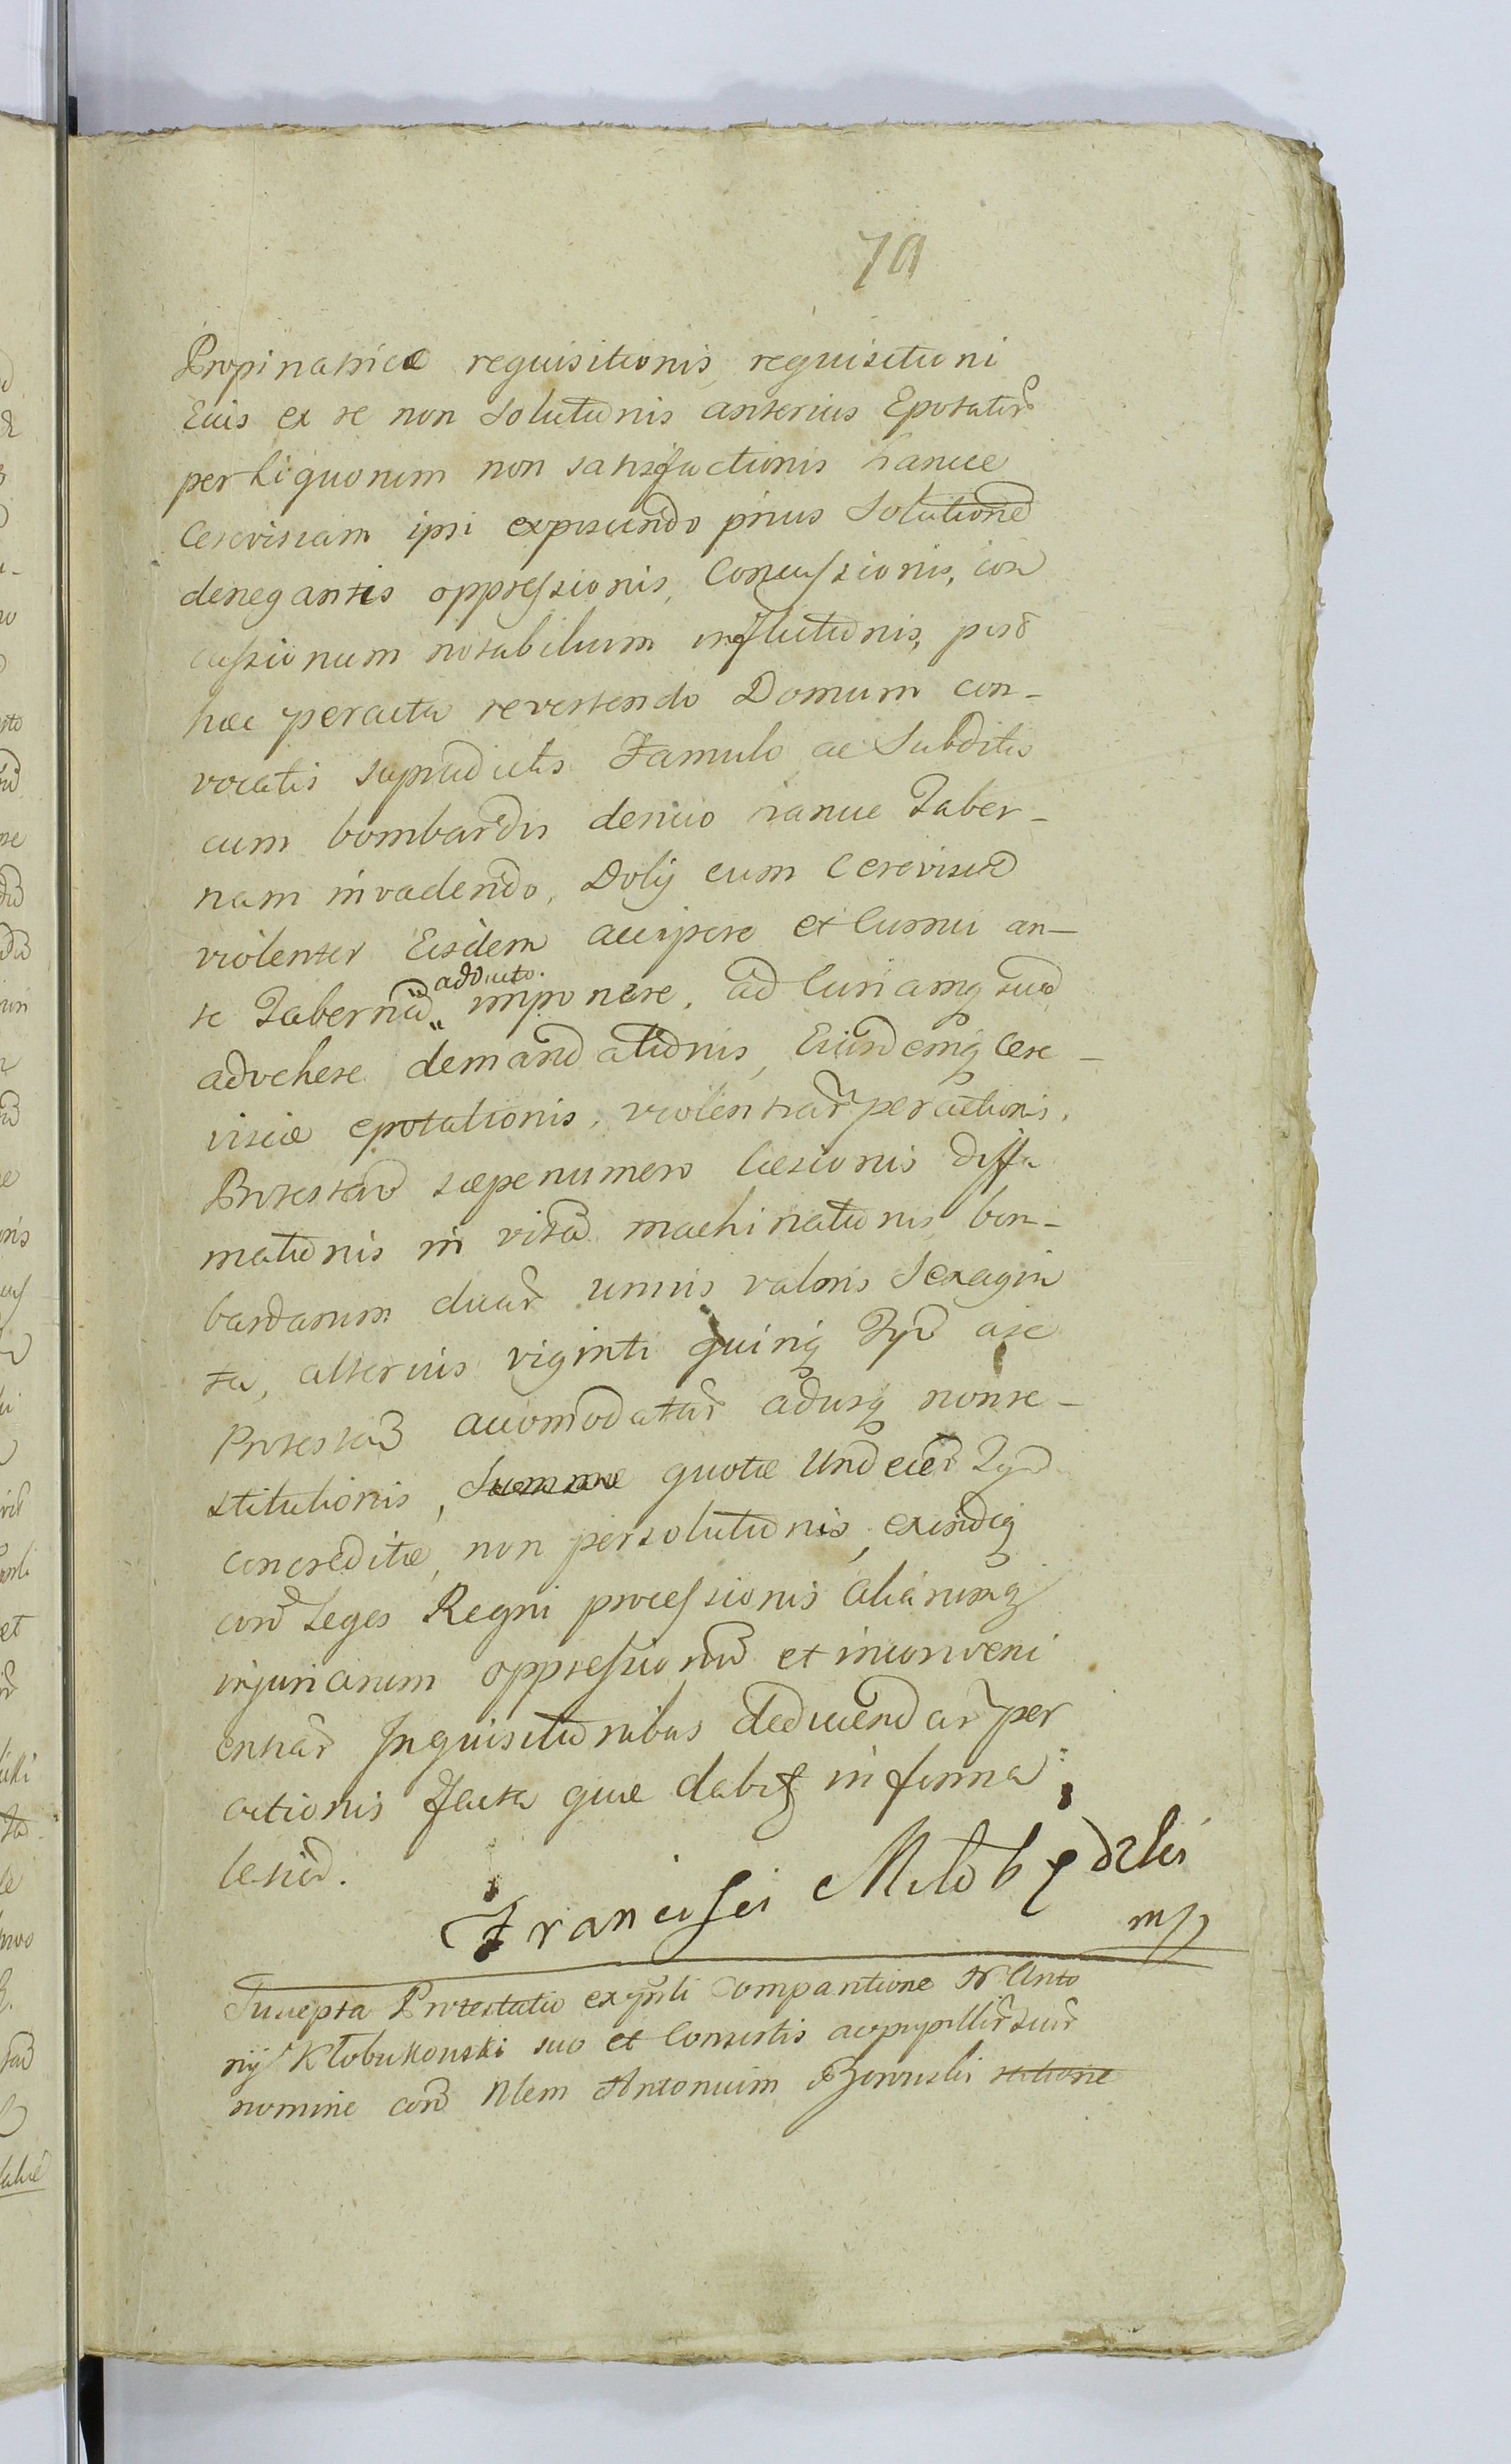 79
Propinatricæ requisitionis, requisitioni
Eius ex re non Solutionis anterius Epotator
per liquorum non satisfactionis hancce
Cerevisiam ipsi exposcendo prius Solutione
denegantis oppressionis, Concussionis, con
cussionum notabilium inflictionis, post
hæc peracta revertendo Domum con-
vocatis supradictis Famulo ac Subditis
cum bombardis denuo hancce Taber-
nam invadendo, Dolij cum Cerevisia
violenter Eisdem accipere et Currui an-
te Taberna adducto imponere, ad Curiamq sua
advehere demandationis, Eiusdemq Cere-
visiæ epotationis, violentiar peractionis,
Protestan sæpenumero læsionis diffa
mationis in vita machinationis, bom-
bardarum duar unius valoris Sexagin
ta, alterius viginti quinq Tyn a se
Protestan accomodatar adusq nonre-
stitutionis, Summæ quotæ Undecem Tyn
concreditæ, non persolutionis, exindeq
con Leges Regni processionis aliarumq
injuriarum oppressionu et inconveni
entiar Inquisitionibus deducendar per
actionis facta quæ dabit in forma
Francisci Miłobędzki
mp
Suscepta Protestatio ex pnti Comparitione N Anto
nij Kłobukouski suo et Consortis ac pupillor suor
nomine con Nlem Antonium Borouski ratione